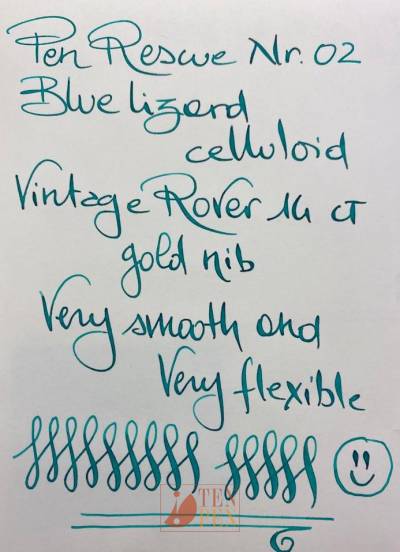 Pen Rescue Nr. 02
Blue lizard
celluloid
Vintage Rover 14 CT
gold nib
Very smooth and
Very flexible
TEN
PEN